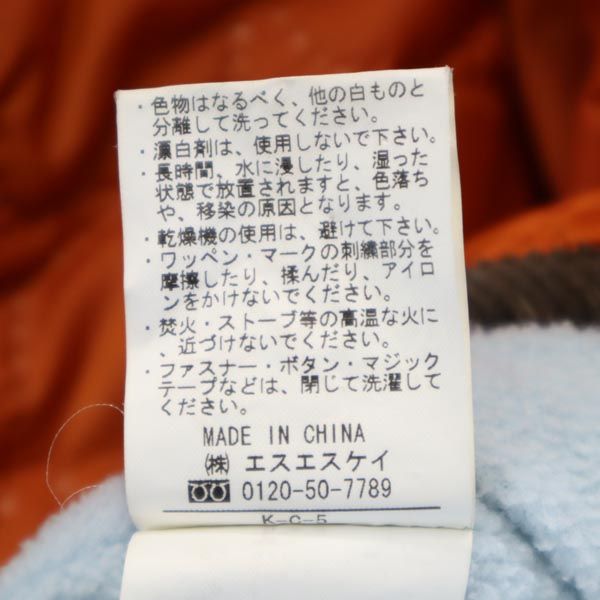 ・色物はなるべく、他の白ものと
分離して洗ってください。
・漂白剤は、使用しないで下さい。
・長時間、水に浸したり、湿った
状態で放置されますと、色落ち
や、移染の原因となります。
・乾燥機の使用は、避けて下さい。
・ワッペン・マークの刺繍部分を
摩擦したり、揉んだり、アイロ
ンをかけないでください。
・焚火・ストーブ等の高温な火に
、近づけないでください。
・ファスナー・ボタン・マジック
テープなどは、閉じて洗濯して
ください。
MADE IN CHINA
㈱ エスエスケイ
0120-50-7789
K-C-5